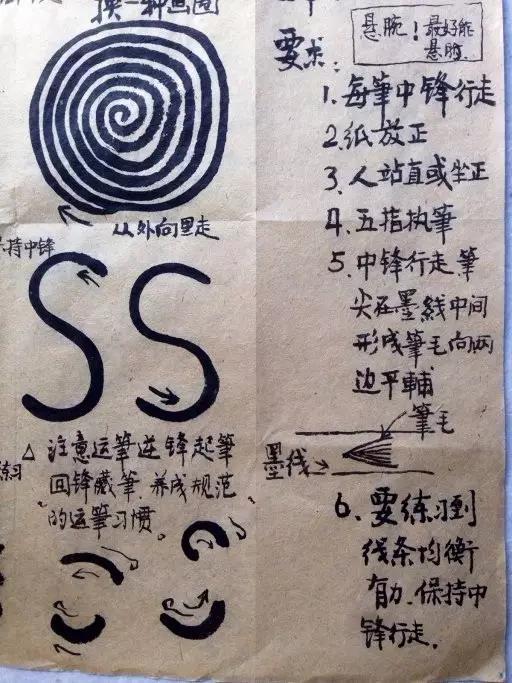 换一种画圈
从外向里走
持中锋
△ 注意运筆逆锋起筆
回锋藏筆.养成规范
的运筆习惯。
练习
悬腕！最好能
悬肘.
要求:
1. 每筆中锋行走
2.纸放正
3.人站直或坐正
4.五指执筆
5.中锋行走.筆
尖在墨线中间
形成筆毛向两
边平輔
筆毛
墨线
6.要练习到
线条均衡
有力.保持中
锋行走.